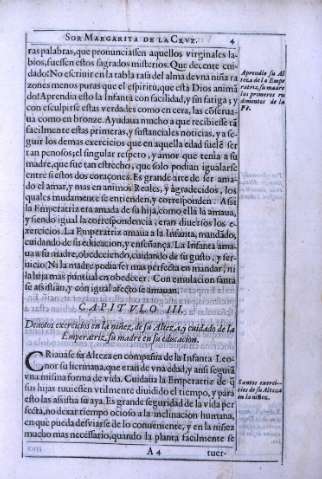 SOR MARGARITA DE LA CRVZ. 4
ras palabras, que pronunciassen aquellos virginales la-
bios, fuessen estos sagrados misterios. Que decente cui-
dado! No escriuir en la tabla rasa del alma de vna niña ra
zones menos puras que el espiritu, que està Dios animã
do! Aprendia esto la Infanta con facilidad, y sin fatiga; y
con esculpirse estas verdades como en cera, las conserua-
ua como en bronce. Ayudaua mucho a que recibiesse tã
facilmente estas primeras, y sustanciales noticias, y a se-
guir los demas exercicios que en aquella edad suelẽ ser
tan penosos, el singular respeto, y amor que tenia a su
madre, que fue tan estrecho, que solo podian igualarse
entre si estos dos coraçones. Es grande arte de ser ama-
do el amar, y mas en animos Reales, y agradecidos, los
quales mudamente se entienden, y corresponden. Assi
la Emperatriz era amada de su hija, como ella la amaua,
y siendo igual la correspondencia, eran diuersos los e-
xercicios. La Emperatriz amaua a la Infanta, mandãdo,
cuidando de su educacion, y enseñança. La Infanta ama-
ua a su madre, obedeciendo, cuidando de su gusto, y ser-
uicio. Ni la madre podia ser mas perfecta en mandar, ni
la hija mas puntual en obedecer. Con emulacion santa
se assistian, y con igual afecto se amauan.
CAPITVLO III.
Deuotos exercicios en la niñez, de su Alteza, y cuidado de la
Emperatriz, su madre en su educacion.
CRiauase su Alteza en compañia de la Infanta Leo-
nor su hermana, que eran de vna edad, y ansi seguiã
vna misma forma de vida. Cuidaua la Emperatriz de q̃
sus hijas tuuiessen vtilmente diuidido el tiempo, y para
esto las assistia su aya. Es grande seguridad de la vida per
fecta, no dexar tiempo ocioso a la inclinacion humana,
en que pueda desviarse de lo conueniente, y en la niñez
mucho mas necessario, quando la planta facilmente se
A 4 tuer-
Aprendia su Al
teza de la Empe
ratriz, su madre
los primeros ru
dimentos de la
Fè.
Santos exerci-
cios de su Alteza
en la niñez.